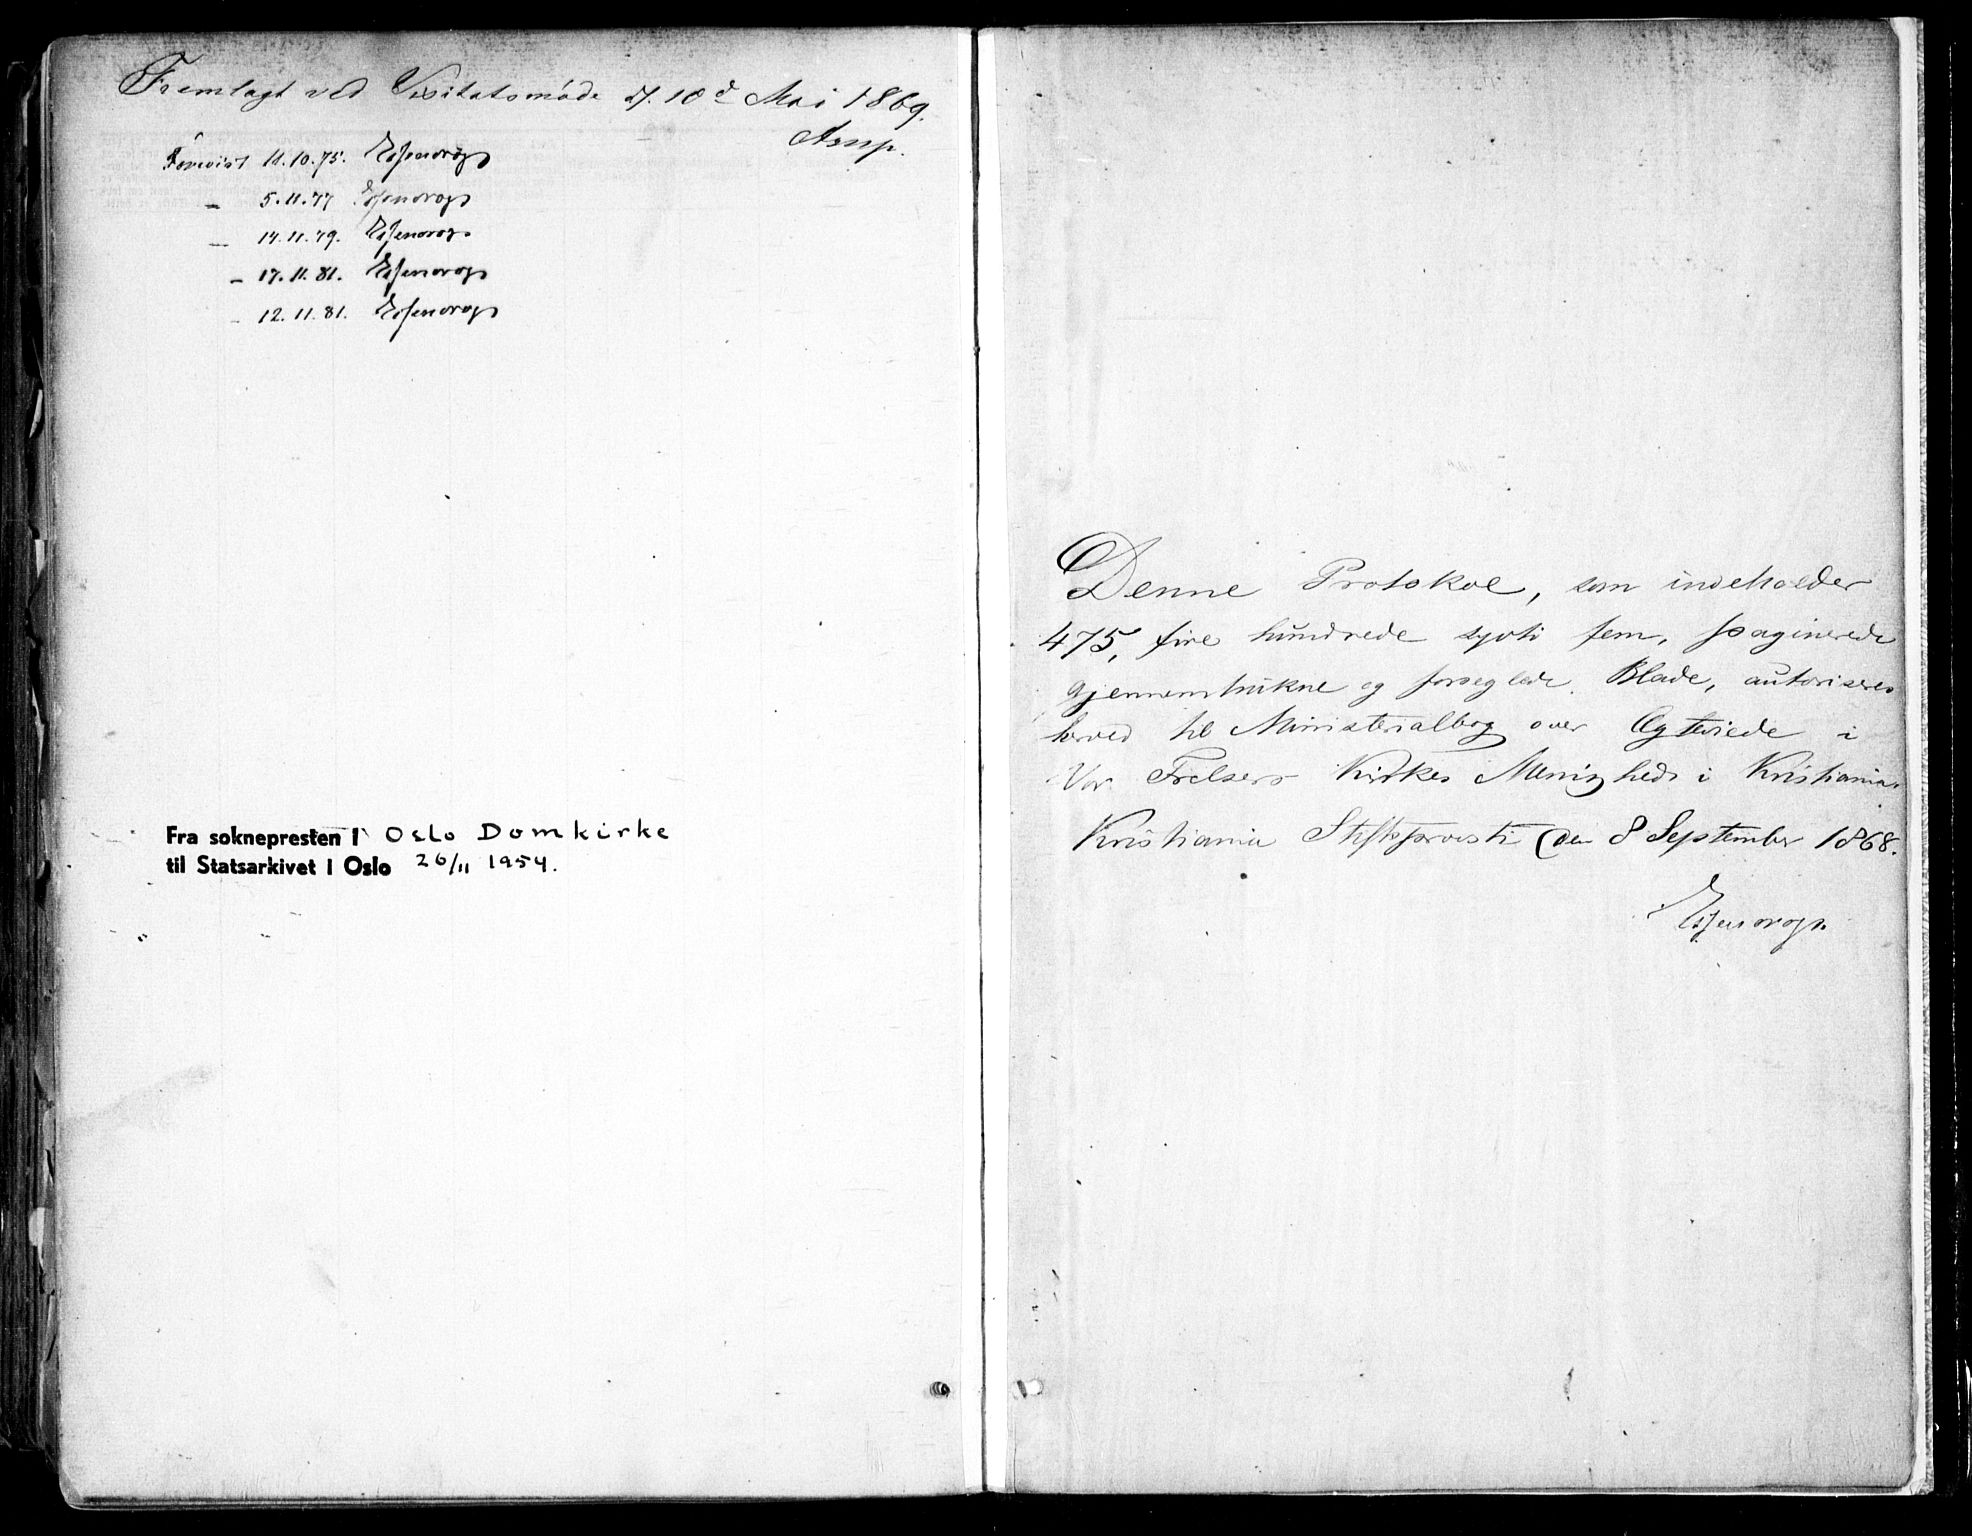 Fremlagt ved Visitatsmöde d. 10d Mai 1869.
Arup.
Forevist 11.10.75. Essendrop
– 5.11.77 Essendrop
– 14.11.79. Essendrop
– 17.11.81. Essendrop
– 12.11.81. Essendrop
Fra soknepresten i Oslo Domkirke
til Statsarkivet i Oslo 26/11 1954.
Denne Protokol, som indeholder
475, fire hundrede sytti fem, paginerede
gjennemtrukne og forseglede Blade, autoriseres
herved til Ministerialbog over Ægteviede i
Vor Frelsers Kirkes Menighed i Kristiania.
Kristiania Stiftsprovsti den 8 September 1868.
Essendrop.